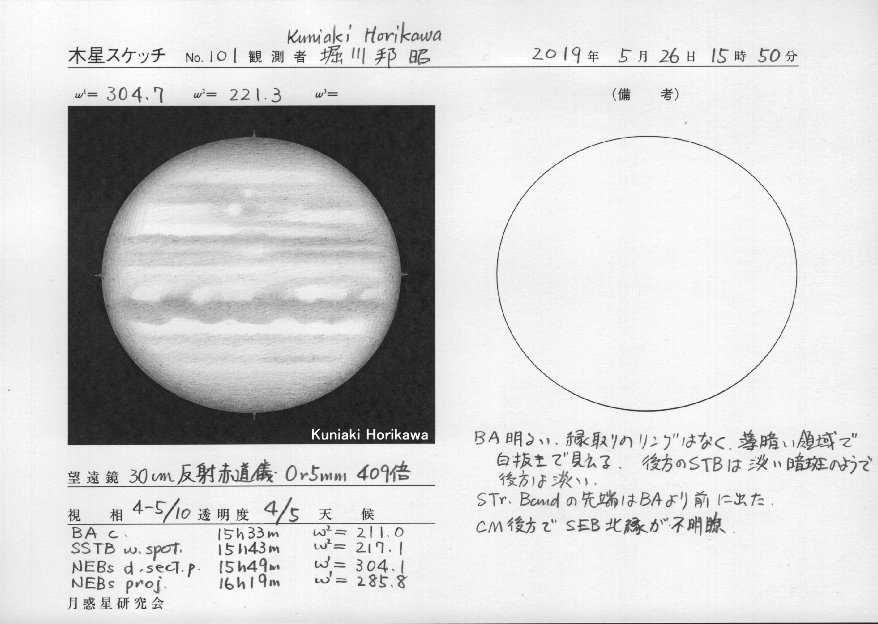 Kuniaki Horikawa
木星スケッチ No. 101 観測者 堀川邦昭 2019年 5月 26日 15時 50分
ω¹= 304.7 ω²= 221.3 ω³=
(備 考)
Kuniaki Horikawa
BA 明るい、縁取りのリングはなく、薄暗い領域で
白抜きで見える。後方のSTBは淡い暗斑のようで
後方は淡い.
STr. Bandの先端はBAより前に出た.
CM後方で SEB北縁が不明瞭.
望遠鏡 30cm反射赤道儀 Or5mm 409倍
視 相 4-5/10 透明度 4/5 天 候
BA c. 15h33m ω²= 211.0
SSTB w.spot. 15h43m ω²= 217.1
NEBs d.sect.p. 15h49m ω¹= 304.1
NEBs proj. 16h19m ω¹= 285.8
月惑星研究会